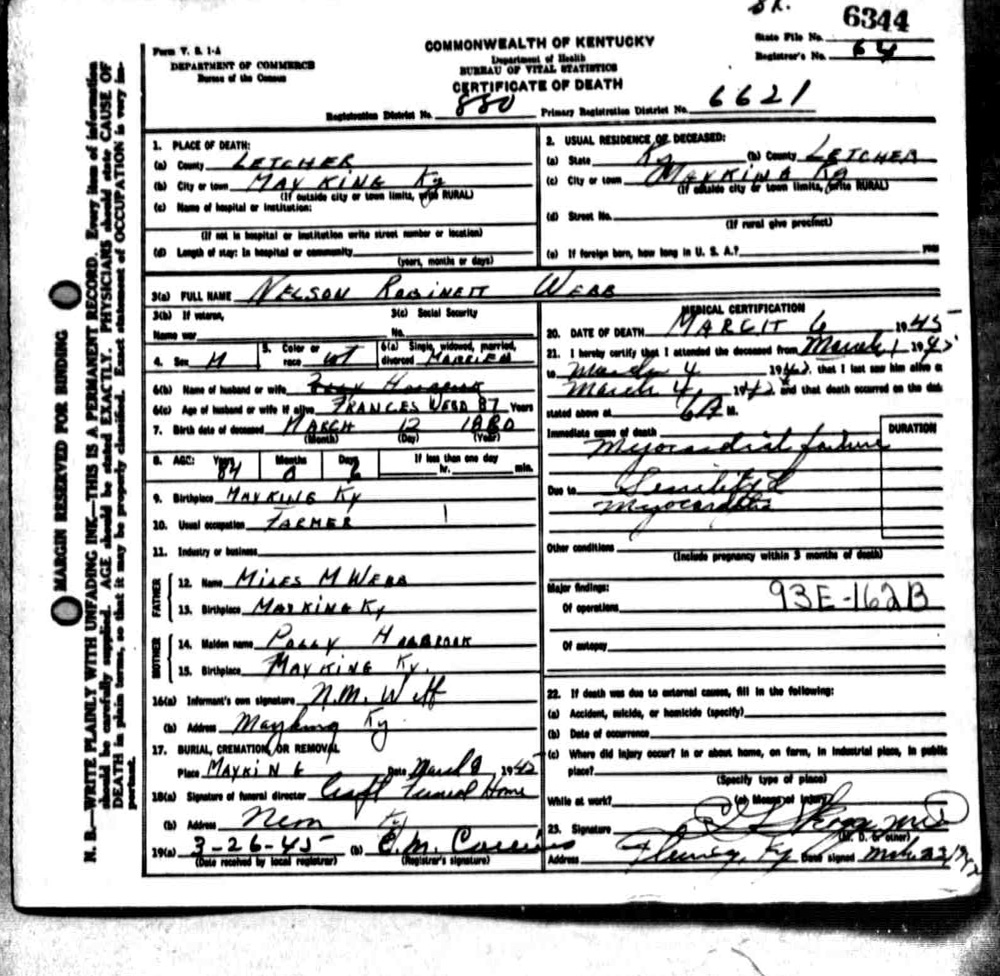 6344
Form V. S. 1-A
DEPARTMENT OF COMMERCE
Bureau of the Census
COMMONWEALTH OF KENTUCKY
Department of Health
BUREAU OF VITAL STATISTICS
CERTIFICATE OF DEATH
State File No.
Registrar's No. 64
Registration District No. 880 Primary Registration District No. 6621
MARGIN RESERVED FOR BINDING
N. B.—WRITE PLAINLY WITH UNFADING INK—THIS IS A PERMANENT RECORD. Every item of information
should be carefully supplied. AGE should be stated EXACTLY. PHYSICIANS should state CAUSE OF
DEATH in plain terms, so that it may be properly classified. Exact statement of OCCUPATION is very im-
portant.
1. PLACE OF DEATH:
(a) County LETCHER
(b) City or town MAYKING Ky
(If outside city or town limits, write RURAL)
(c) Name of hospital or institution:
(If not in hospital or institution write street number or location)
(d) Length of stay: In hospital or community
(years, months or days)
2. USUAL RESIDENCE OF DECEASED:
(a) State Ky (b) County LETCHER
(c) City or town MAYKING Ky
(If outside city or town limits, write RURAL)
(d) Street No.
(If rural give precinct)
(e) If foreign born, how long in U. S. A.? years
3(a) FULL NAME NELSON ROBINETT WEBB
3(b) If veteran, 3(c) Social Security
Name war No.
4. Sex M 5. Color or race WT 6(a) Single, widowed, married, divorced MARRIED
6(b) Name of husband or wife
6(c) Age of husband or wife if alive FRANCES WEBB 87 Years
7. Birth date of deceased MARCH 12 1860
(Month) (Day) (Year)
8. AGE: Years Months Days If less than one day
84 hr. min.
9. Birthplace MAYKING Ky
10. Usual occupation FARMER
11. Industry or business
FATHER
12. Name MILES M WEBB
13. Birthplace MAYKING Ky
MOTHER
14. Maiden name POLLY HOLBROOK
15. Birthplace MAYKING Ky.
16(a) Informant's own signature N.M. Webb
(b) Address Mayking Ky
17. BURIAL, CREMATION, OR REMOVAL
Place MAYKING Date March 8 1945
18(a) Signature of funeral director Craft Funeral Home
(b) Address Neon Ky
19(a) 3-26-45 (b) C.M.
(Date received by local registrar) (Registrar's signature)
MEDICAL CERTIFICATION
20. DATE OF DEATH MARCH 6 1945
21. I hereby certify that I attended the deceased from March 1 1945
to March 4 1945, that I last saw him alive on
March 4, 1945 and that death occurred on the date
stated above at 6 A M.
Immediate cause of death DURATION
Myocardial failure
Due to Senility &
Myocarditis
Other conditions
(Include pregnancy within 3 months of death)
Major findings:
Of operations 93E-162B
Of autopsy
22. If death was due to external causes, fill in the following:
(a) Accident, suicide, or homicide (specify)
(b) Date of occurrence
(c) Where did injury occur? In or about home, on farm, in industrial place, in public
place?
(Specify type of place)
While at work? (e) Means of injury
23. Signature
(M. D. or other)
Address Ky Date signed